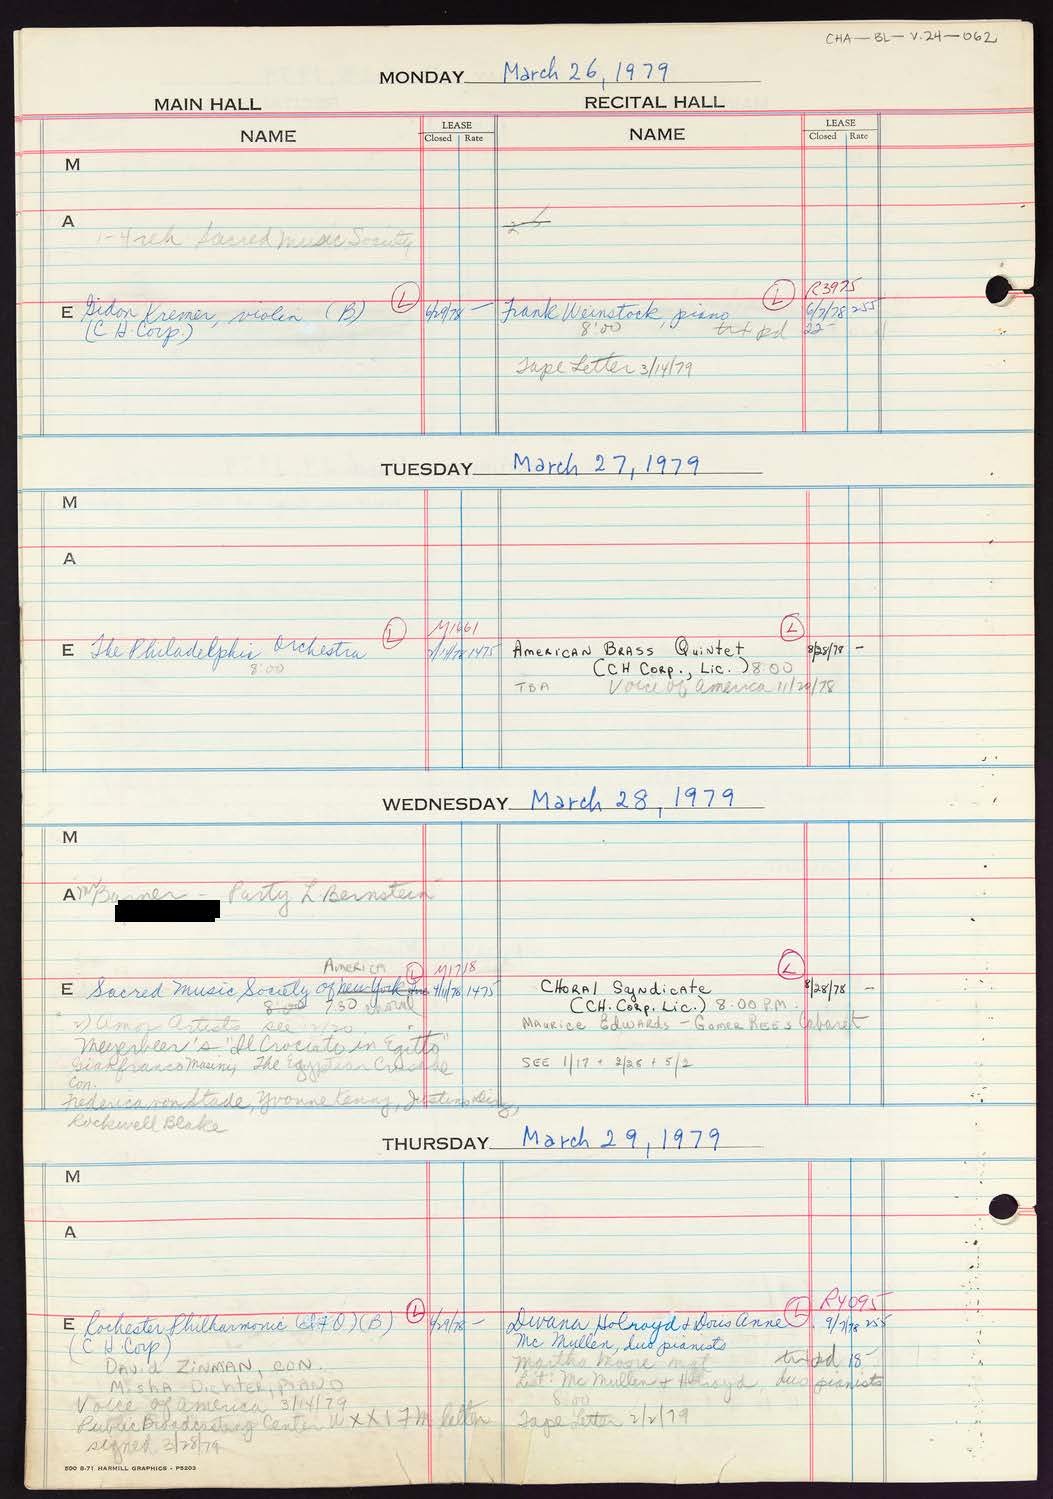 CHA-BL-V.24-062
MONDAY March 26, 1979
MAIN HALL
RECITAL HALL
NAME
LEASE
Closed Rate
NAME
LEASE
Closed Rate
M
A
1-4 reh Sacred Music Society
E Gidon Kremer, violin (B)
(C H Corp)
L
6/29/78 -
Frank Weinstock, piano
L
R3975
6/7/78 255
8:00
22-
Tape Letter 3/14/79
TUESDAY March 27, 1979
M
A
E The Philadelphia Orchestra
8:00
L
M1661
1475
American Brass Quintet
L
8/28/78 -
(CH Corp., Lic.) 8:00
TBA Voice of America 11/20/78
WEDNESDAY March 28, 1979
M
A
Party L Bernstein
America
L
M1718
E Sacred Music Society of New York Inc
4/11/78 1475
8:00 7:30
2) Amor Artists see
Meyerbeer's "Il Crociato in Egitto"
Gianfranco Masini, The Egyptian Crusade
Con.
Federica von Stade, Yvonne Kenny, Justino Diaz,
Rockwell Blake
L
Choral Syndicate
8/28/78 -
(CH. Corp. Lic.) 8:00 P.M.
Maurice Edwards - Gomer Rees Cabaret
SEE 1/17 + 2/28 + 5/2
THURSDAY March 29, 1979
M
A
E Rochester Philharmonic (B)
L
6/29/78 -
(C H Corp)
David Zinman, con.
Misha Dichter, piano
Voice of America 3/14/79
Public Broadcasting Center WXXI FM letter
signed 3/28/79
Divana Holroyd & Doris Anne
L
R4095
9/7/78 255
Mc Mullen, duo pianists
Martha Moore mgt
18-
List: Mc Mullen & Holroyd, duo pianists
8:00
Tape Letter 2/2/79
500 8-71 HARMILL GRAPHICS - P5203